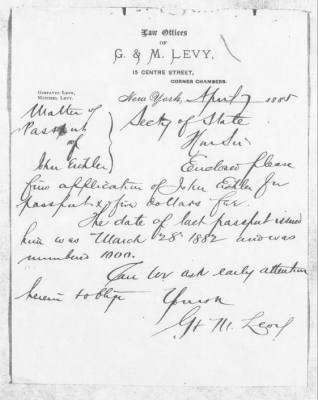 Law Offices
OF
G. & M. LEVY,
15 CENTRE STREET,
CORNER CHAMBERS.
GUSTAVE LEVY,
MITCHEL LEVY.
New York, April 7 1885
Matter of
Passport
of
John Eichler
Secty of State
Hon Sir
Enclosed please
find application of John Eichler for
passport & five dollars fee.
The date of last passport issued
him was March 28th 1882 and was
numbered
Can we ask early attention
herein & oblige Yours
G & M. Levy